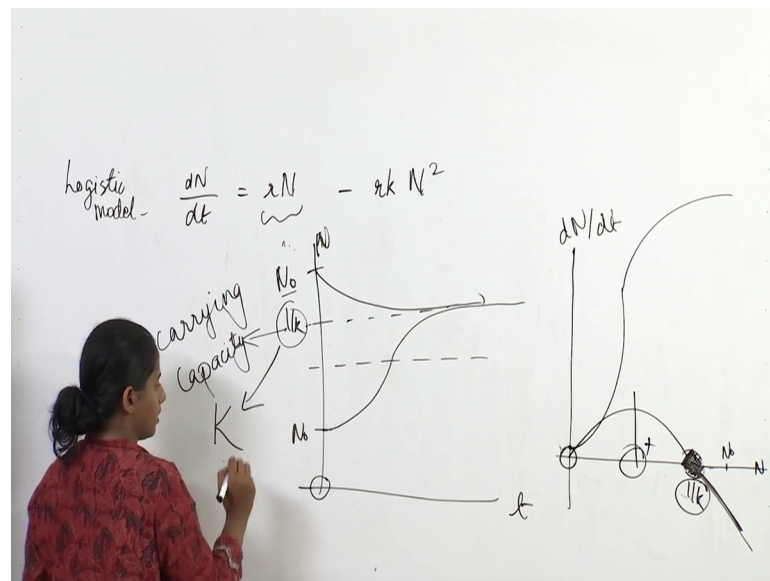 Logistic model- dN/dt = rN - rk N²
N
N₀
1/k
carrying capacity
K
N₀
t
dN/dt
*
N₀
N
1/k